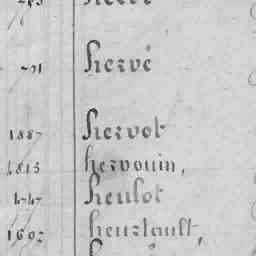 Hervé
Hervé
1887 Hervot
1815 hervouin,
1747 Heulot
1602 heurtault,